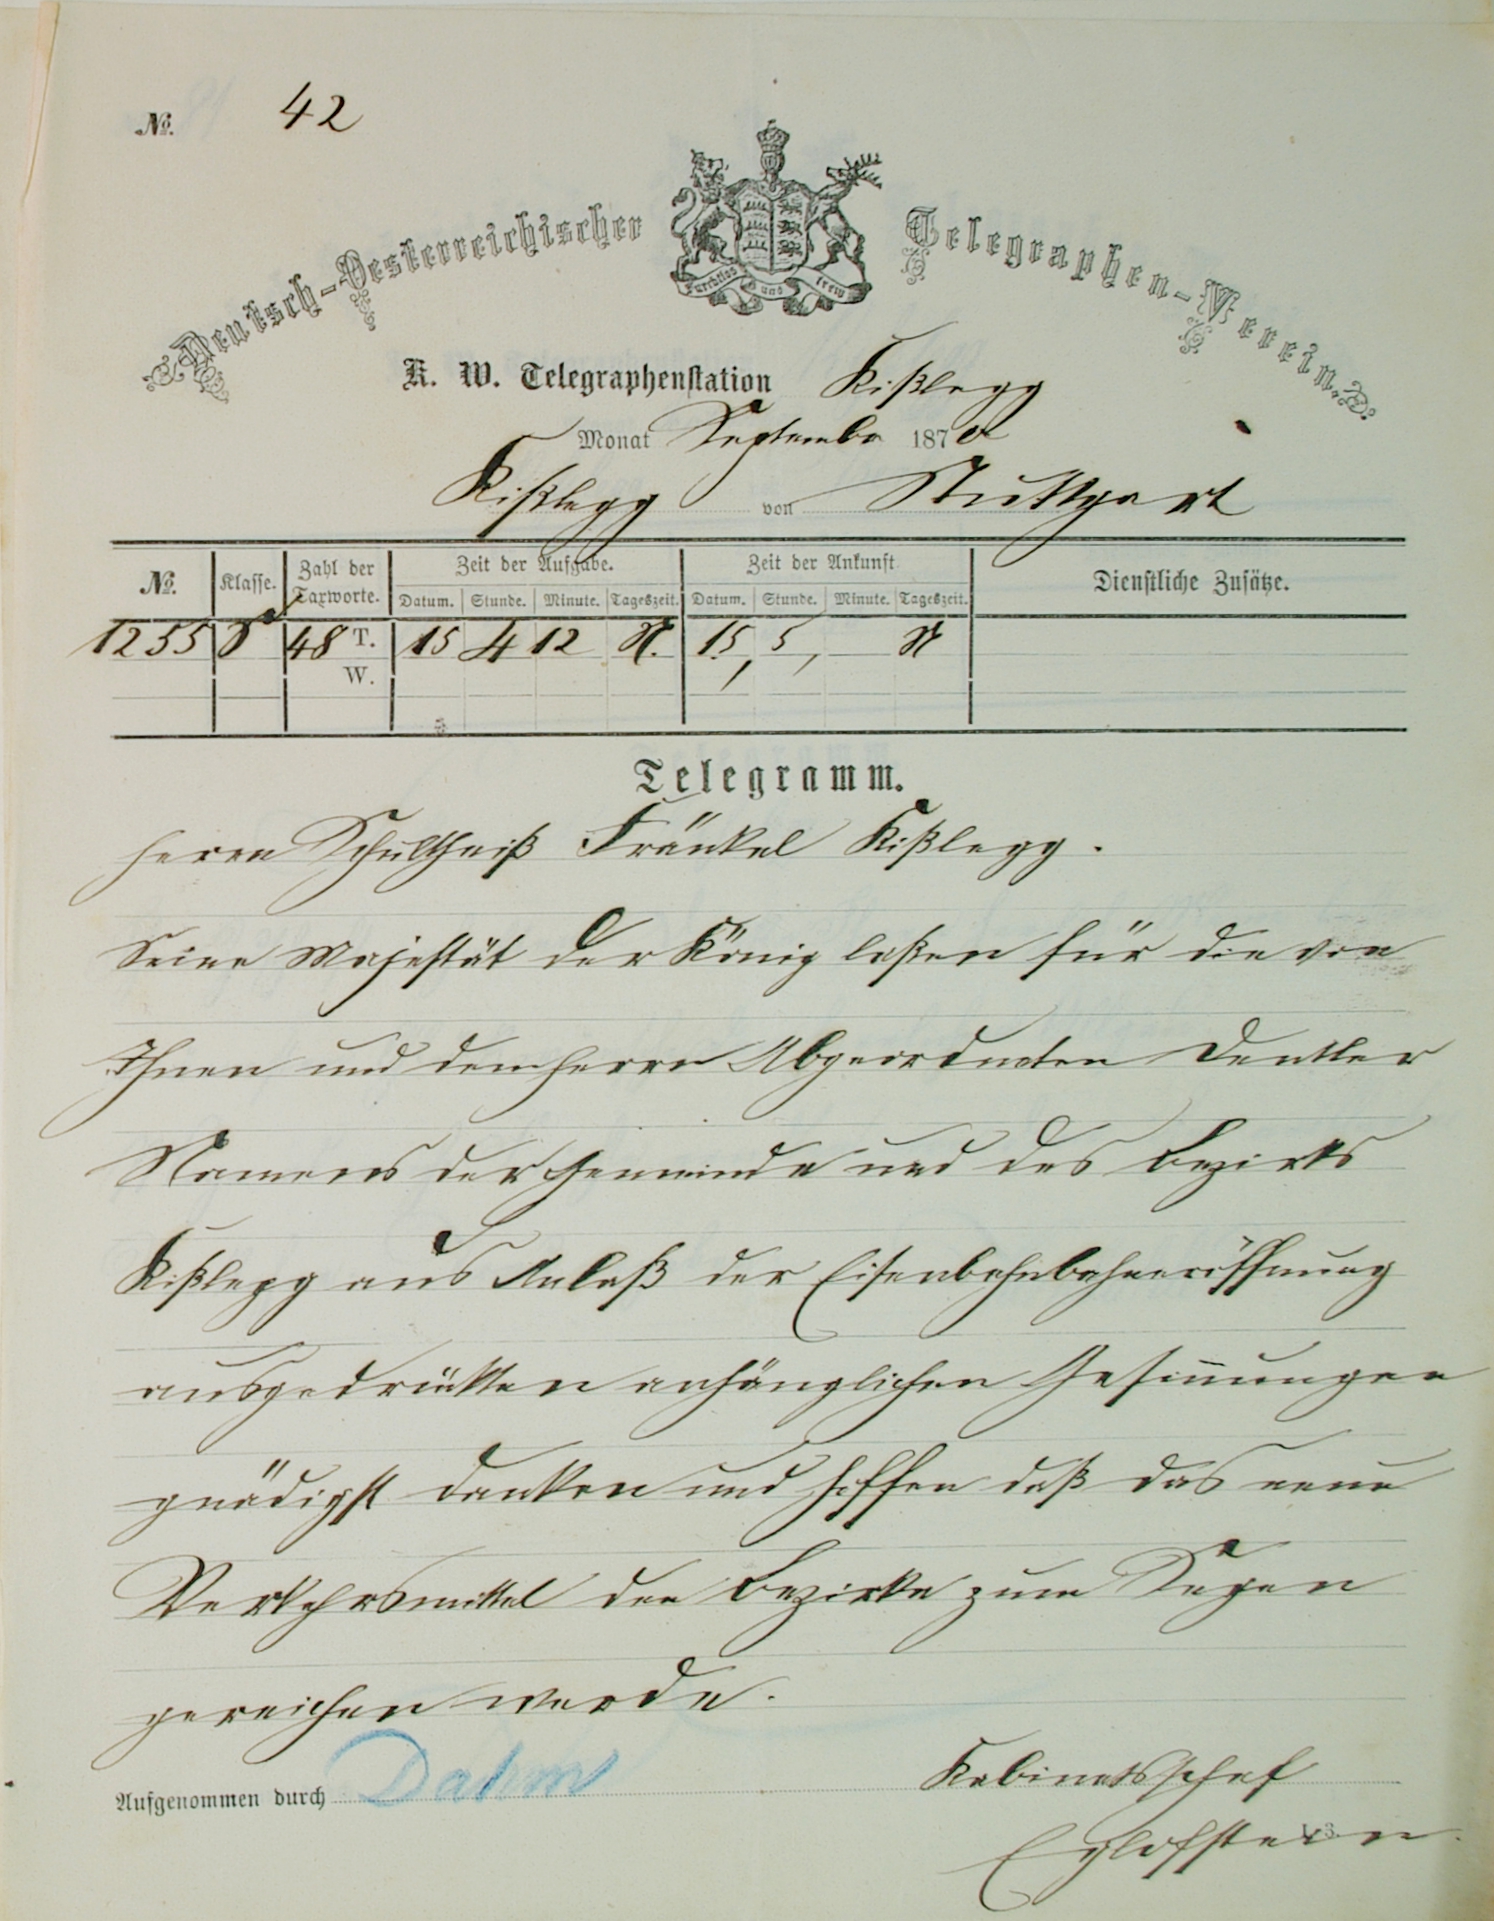 No. 42
Furchtlos und trew
Deutsch-Oesterreichischer Telegraphen-Verein.
K. W. Telegraphenstation Kißlegg
Monat September 1870
Kißlegg von Stuttgart
No. Klasse. Zahl der Taxworte. Zeit der Aufgabe. Zeit der Ankunft Dienstliche Zusätze.
Datum. Stunde. Minute. Tageszeit. Datum. Stunde. Minute. Tageszeit.
1255 S 48 T. 15 4 12 N. 15, 5, N
W.
Telegramm.
Herrn Schultheiß Fränkel Kißlegg.
Seine Majestät der König laßen für die von
Ihnen und dem Herrn Abgeordneten Dentler
Namens der Gemeinde und des Bezirks
Kißlegg aus Anlaß der Eisenbahnbahneröffnung
ausgedrückten anhänglichen Gesinnungen
gnädigst danken und hoffen daß das neue
Verkehrsmittel den Bezirke zum Segen
gereichen werde.
Kabinetsschef
Aufgenommen durch Dahm
Egloffstein.